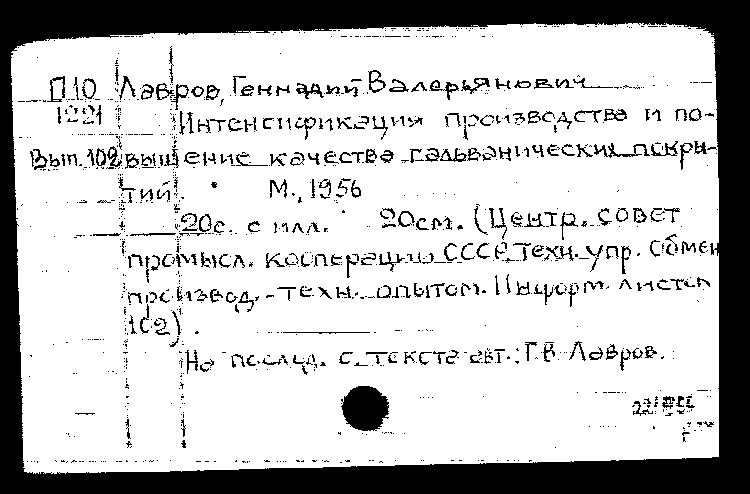 П10 Лавров, Геннадий Валерьянович
1221 Интенсификация производства и по-
Вып.102 вышение качества гальванических покры-
тий. М., 1956
20с. с илл. 20см. (Центр. совет
промысл. кооперации СССР. Техн. упр. Обмен
производ.-техн. опытом. Информ. листок
102).
На послед. с. текста авт.: Г.В. Лавров.